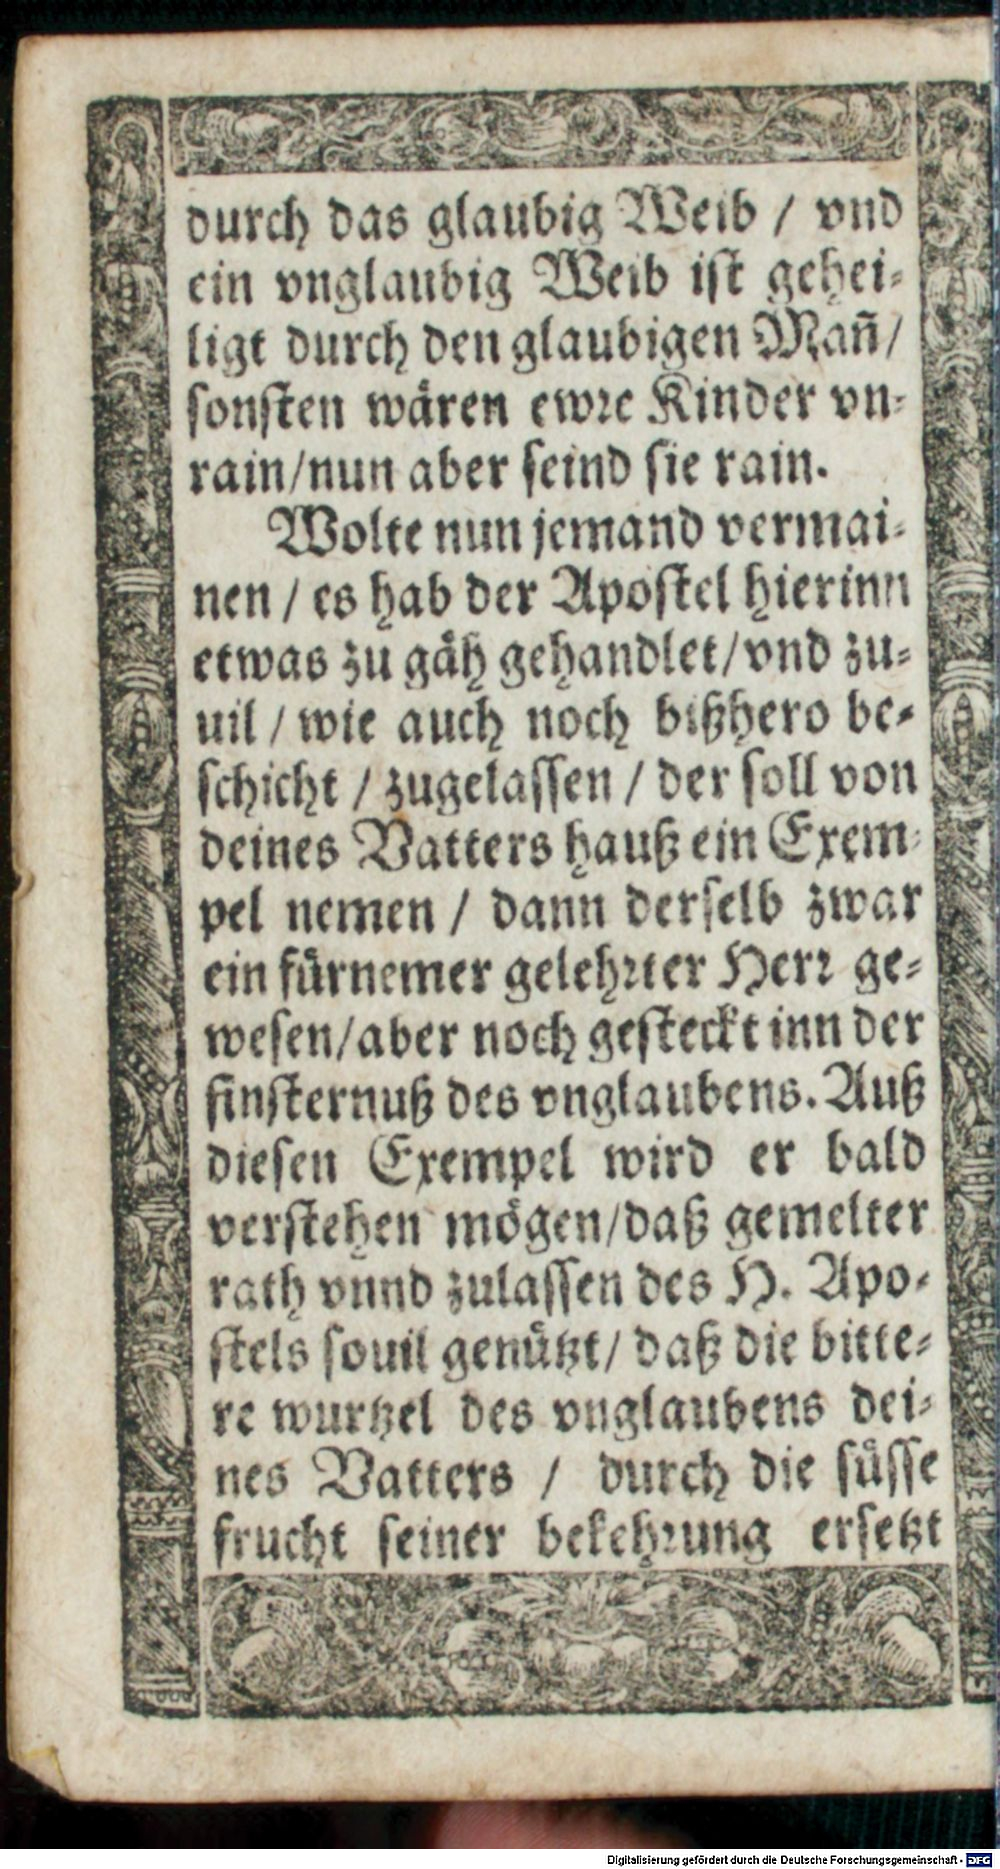 durch das glaubig Weib / vnd
ein vnglaubig Weib ist gehei-
ligt durch den glaubigen Mañ/
sonsten wären ewre Kinder vn-
rain/nun aber seind sie rain.
Wolte nun jemand vermai-
nen / es hab der Apostel hierinn
etwas zu gäh gehandlet/vnd zu-
uil / wie auch noch bißhero be-
schicht / zugelassen / der soll von
deines Vatters hauß ein Exem-
pel nemen / dann derselb zwar
ein fürnemer gelehrter Herr ge-
wesen/aber noch gesteckt inn der
finsternuß des vnglaubens. Auß
diesen Exempel wird er bald
verstehen mögen/daß gemelter
rath vnnd zulassen des H. Apo-
stels souil genützt/ daß die bitte-
re wurtzel des vnglaubens dei-
nes Vatters / durch die süsse
frucht seiner bekehrung ersetzt
Digitalisierung gefördert durch die Deutsche Forschungsgemeinschaft - DFG